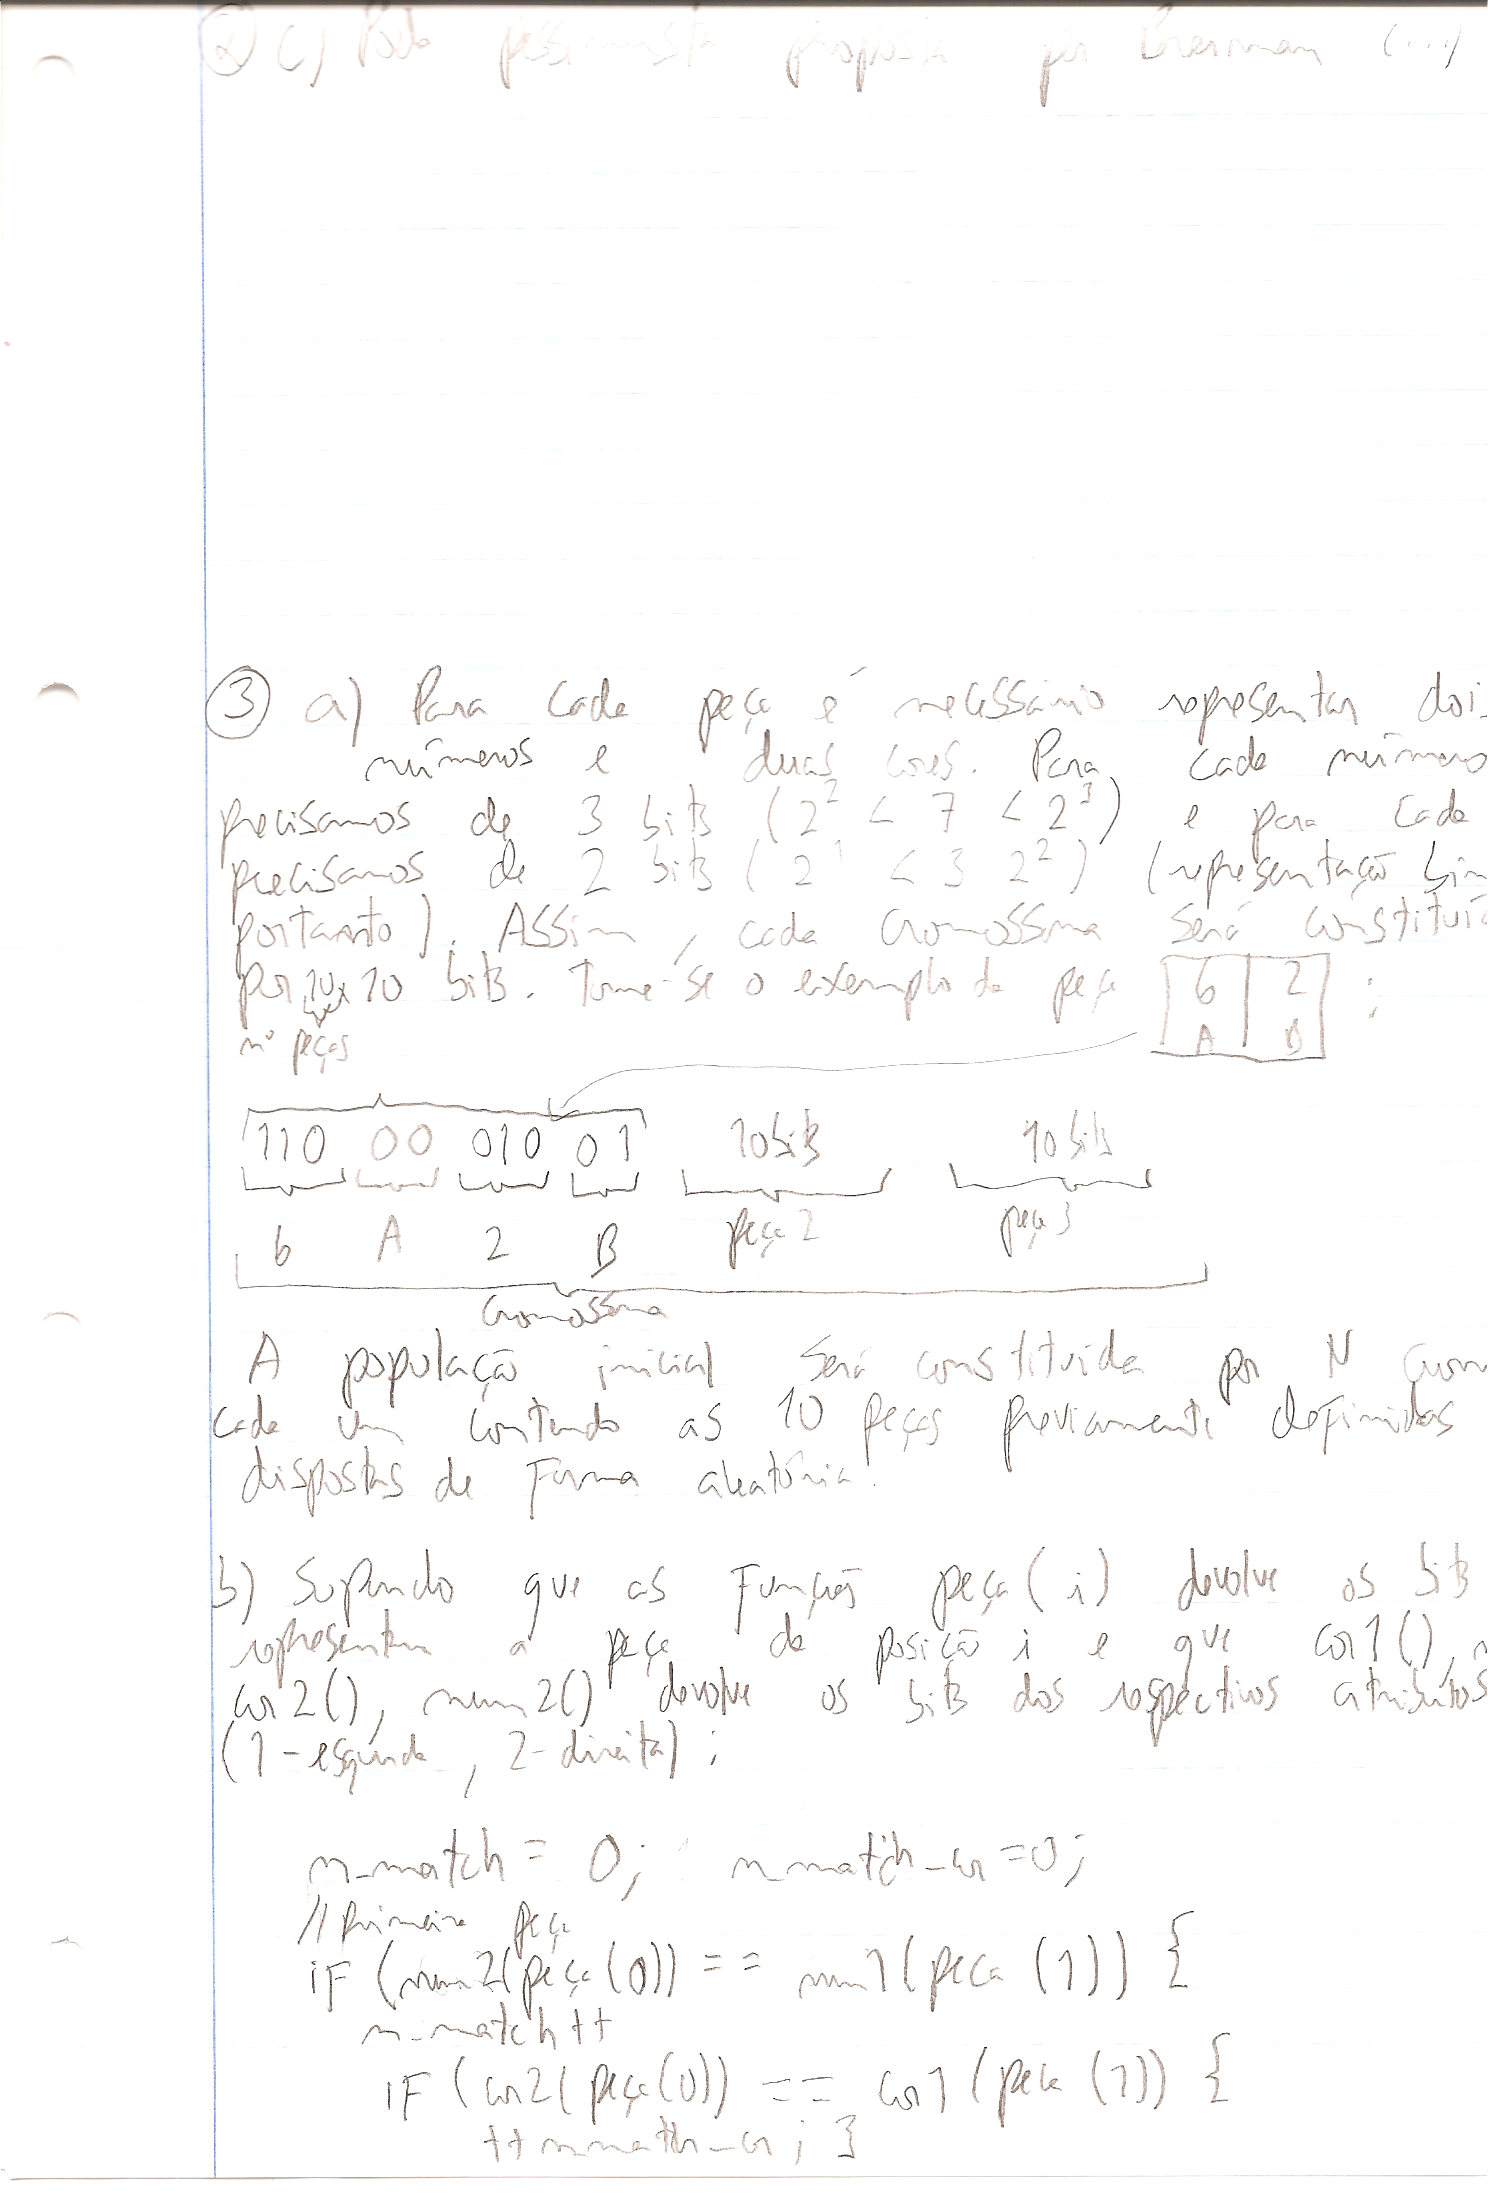 ② c) Poda pessimista proposta por (...)
③ a) Para cada peça é necessário representar dois
números e duas cores. Para cada número
precisamos de 3 bits (2² < 7 < 2³) e para cada
precisamos de 2 bits (2¹ < 3 2²) (representação bin
portanto). Assim, cada cromossma será constituí
por 10x10 bits. Tome-se o exemplo da peça 6 2 :
A B
nº peças
110 00 010 01 10 bits 10 bits
6 A 2 B peça 2 peça 3
cromossma
A população inicial será constituída por N crom
cada um contendo as 10 peças previamente definidas
dispostas de forma aleatória.
b) Supondo que as funções peça(i) devolve os bits
representam a peça da posição i e que cor1(), n
cor2(), num2() devolve os bits dos respectivos atributos
(1-esquerda, 2-direita):
n_match = 0; n_match_cor=0;
//primeira peça
if (num2(peça(0)) == num1(peca (1)) {
n_match++
if (cor2(peça(0)) == cor1 (peca (1)) {
++n_match_cor; }